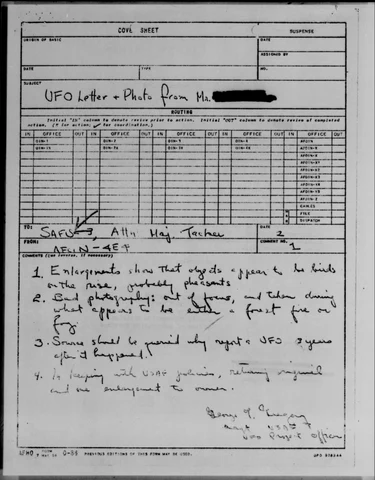 COVE SHEET
SUSPENSE
ORIGIN OF BASIC
DATE
ASSIGNED BY
DATE
TYPE
NO.
SUBJECT
UFO Letter + Photo from Mr.
ROUTING
Initial "IN" column to denote review prior to action. Initial "OUT" column to denote review of completed
action. (✓ for action; for coordination.)
IN OFFICE OUT IN OFFICE OUT IN OFFICE OUT IN OFFICE OUT IN OFFICE OUT
CABLES
FILE
DISPATCH
TO: SAFS-3, Attn Maj. Tacker
DATE 2
FROM: AFCIN-4E4
COMMENT NO. 1
COMMENTS (Use reverse, if necessary)
1. Enlargements show that objects appear to be birds
on the rise, probably pheasants
2. Bad photography: out of focus, and taken during
what appears to be either a forest fire or
fog.
3. Source should be queried why report a UFO 3 years
after it happened.
4. In keeping with USAF policies, returning original
and one enlargement to owner.
George T. Gregory
Capt USAF
UFO Project Officer
AFHQ FORM 0-84 PREVIOUS EDITIONS OF THIS FORM MAY BE USED.